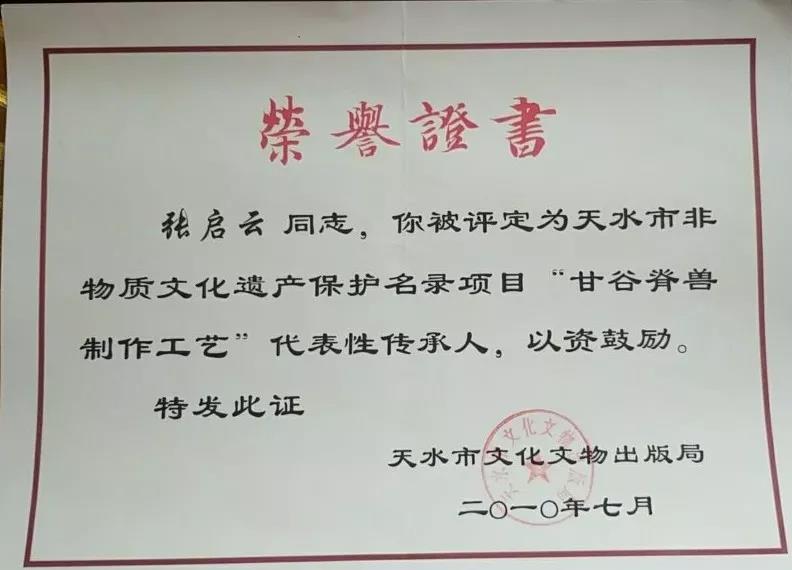 榮譽證書
张启云 同志，你被评定为天水市非
物质文化遗产保护名录项目“甘谷脊兽
制作工艺”代表性传承人，以资鼓励。
特发此证
天水市文化文物出版局
二〇一〇年七月